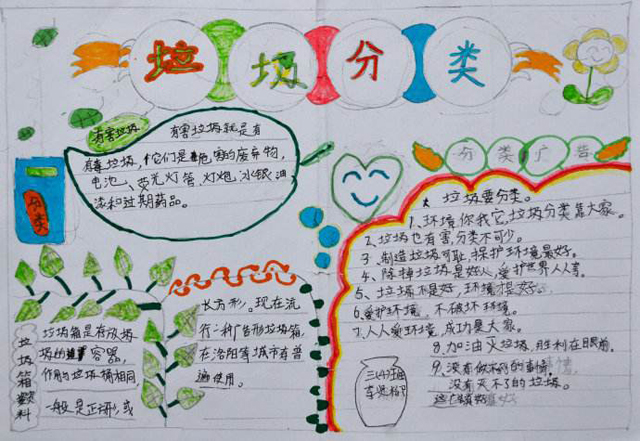 垃圾分类
有害垃圾
有害垃圾就是有
有毒垃圾,它们是有危害的废弃物,
电池、荧光灯管、灯炮、水银、油
漆和过期药品。
分类
分类广告
垃圾要分类。
1、环境你我它,垃圾分类靠大家。
2、垃圾也有害,分类不可少。
3、制造垃圾可耻,保护环境最好。
4、除掉垃圾是好心,爱护世界人人害。
5、垃圾不是好,环境是好。
6、爱护环境,不破坏环境。
7、人人爱环境,成功是大家。
8、加油灭垃圾,胜利在眼前。
9、没有做不到的事情,
没有灭不了的垃圾。
垃圾箱资料
垃圾箱是存放垃
圾的容器,
作用与垃圾桶相同,
一般是正方形或
长方形。现在流
行一种广告形垃圾箱,
在洛阳等城市有普
遍使用。